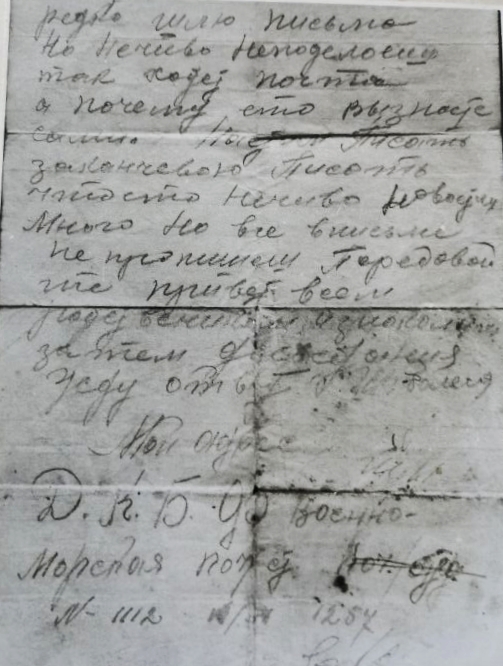 редко шлю письма
но нечево неподелоеш
так ходет почта
а почему ето вызнаете
сами. Писать
заканчеваю Писать
нечево новостей
Много но все вписме
не пропишеш Передовай
те привет всем
затем Досвидания
Жду ответ
Мой адрес
Д.К.Б.Ф Военно-
Морская почта
N- 1112 1287